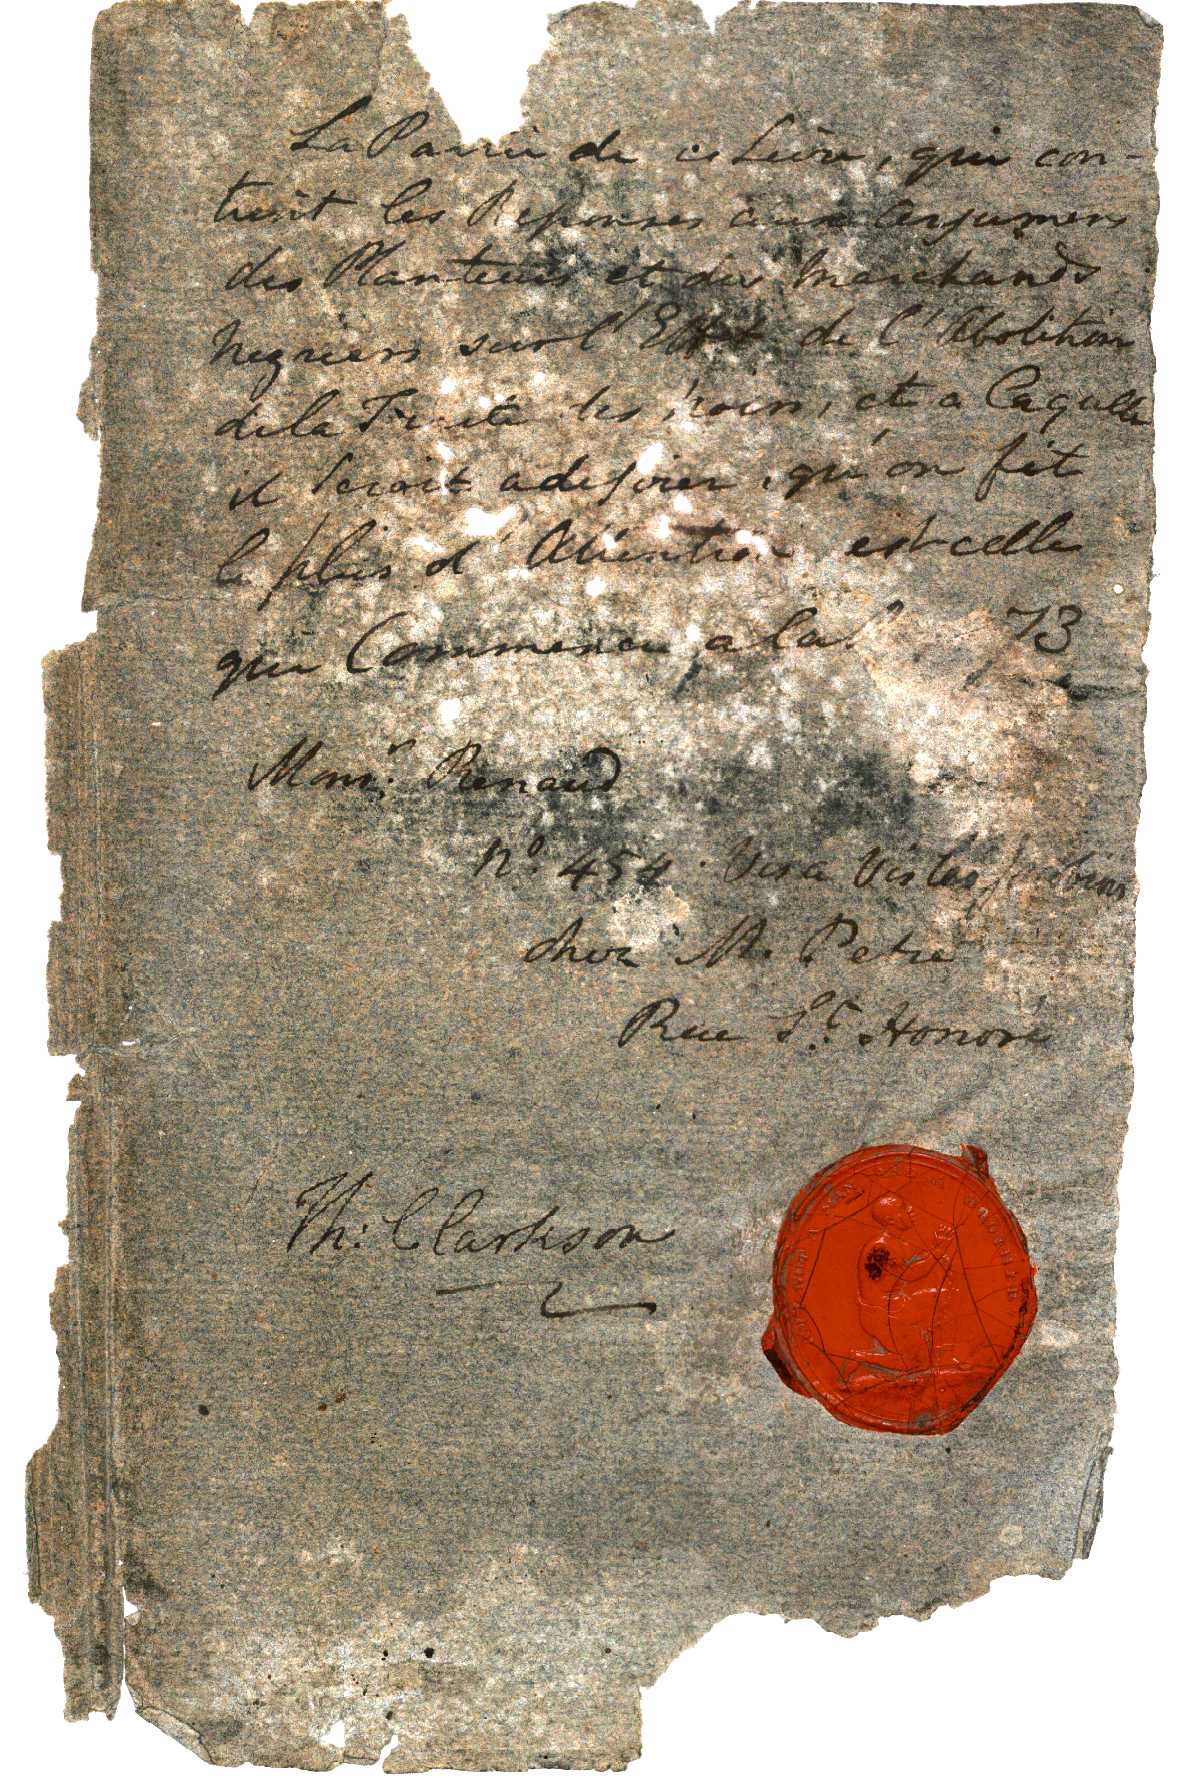 La Partie de ce Livre, qui con-
tient les Reponses aux Argumens
des Planteurs et des Marchands
Negriers sur l'Effet de l'Abolition
de la Traite des Noirs, et a laquelle
il seroit a desirer, qu'on fit
le plus d'Attention est celle
qui Commence a la 73
Monr. Renaud
No. 454. Vis a Vis les Jacobins
chez M. Petre
Rue St. Honoré
Th: Clarkson